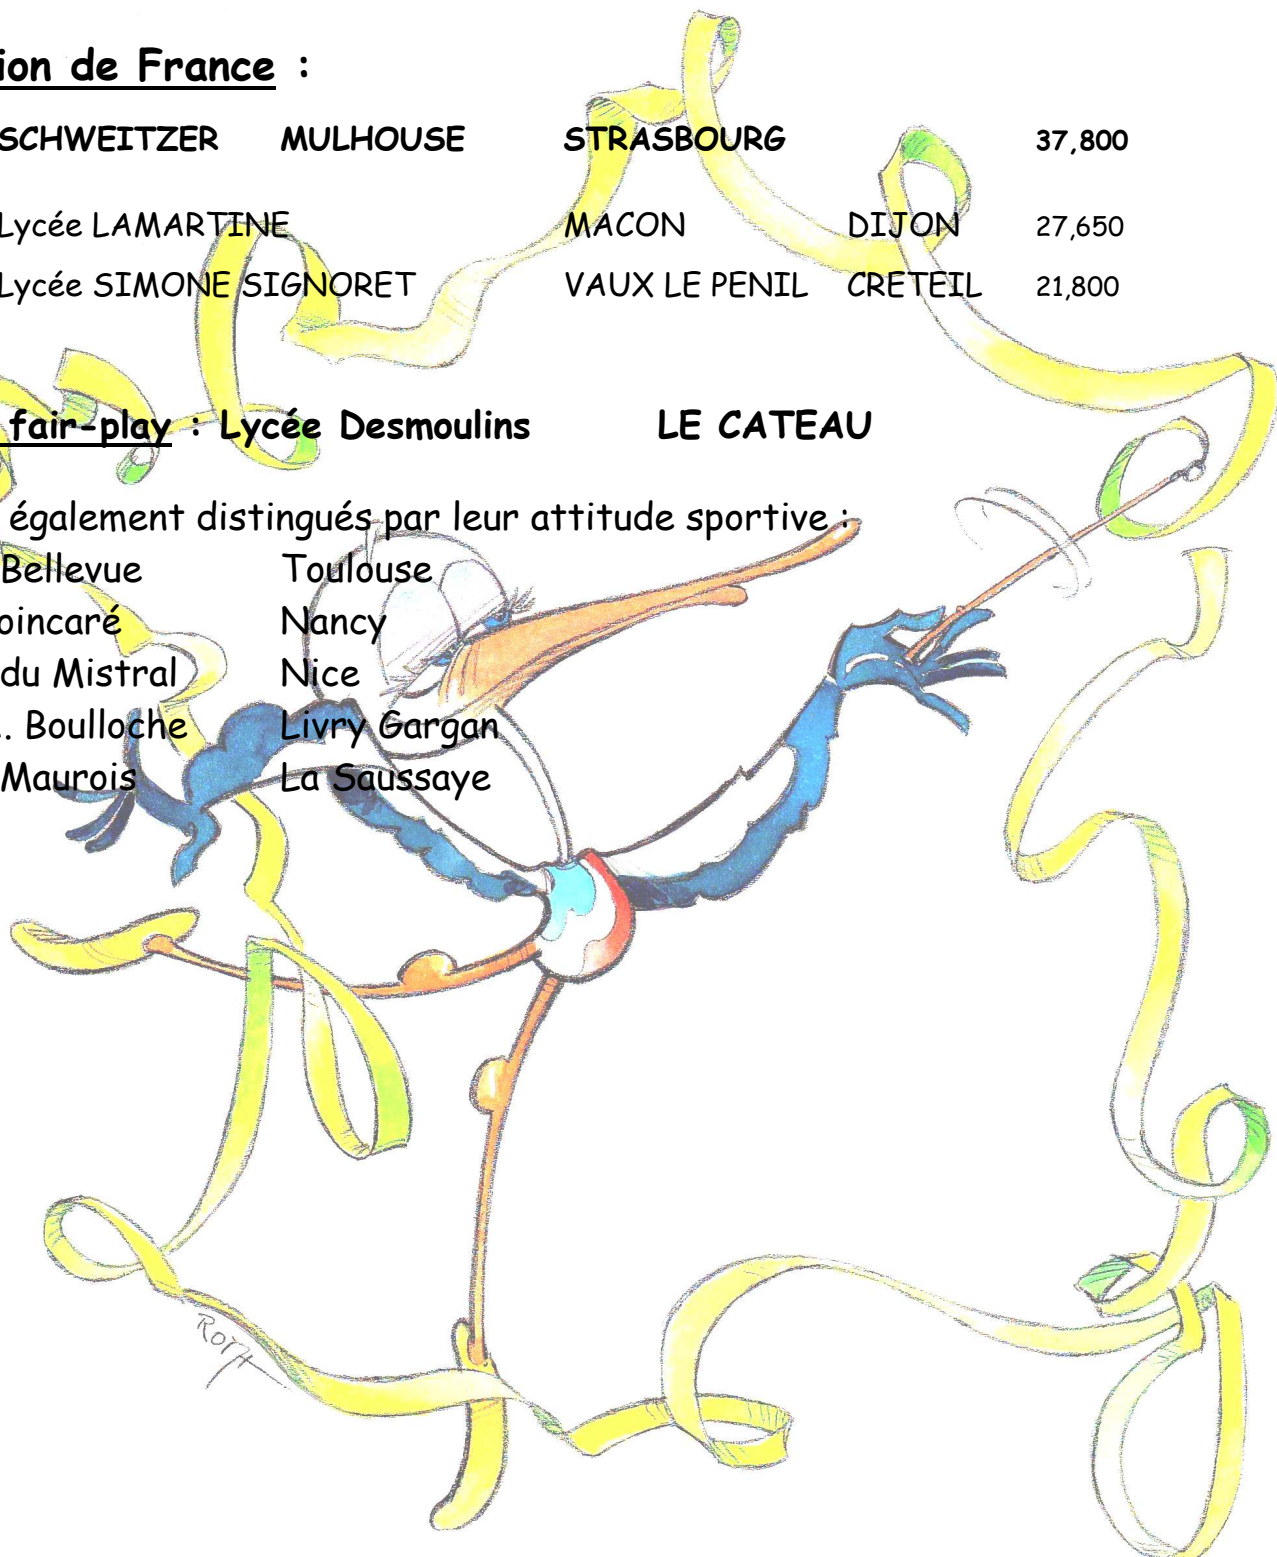 ion de France :
SCHWEITZER MULHOUSE STRASBOURG 37,800
Lycée LAMARTINE MACON DIJON 27,650
Lycée SIMONE SIGNORET VAUX LE PENIL CRETEIL 21,800
fair-play : Lycée Desmoulins LE CATEAU
également distingués par leur attitude sportive :
Bellevue Toulouse
oincaré Nancy
du Mistral Nice
. Boulloche Livry Gargan
Maurois La Saussaye
ROTH